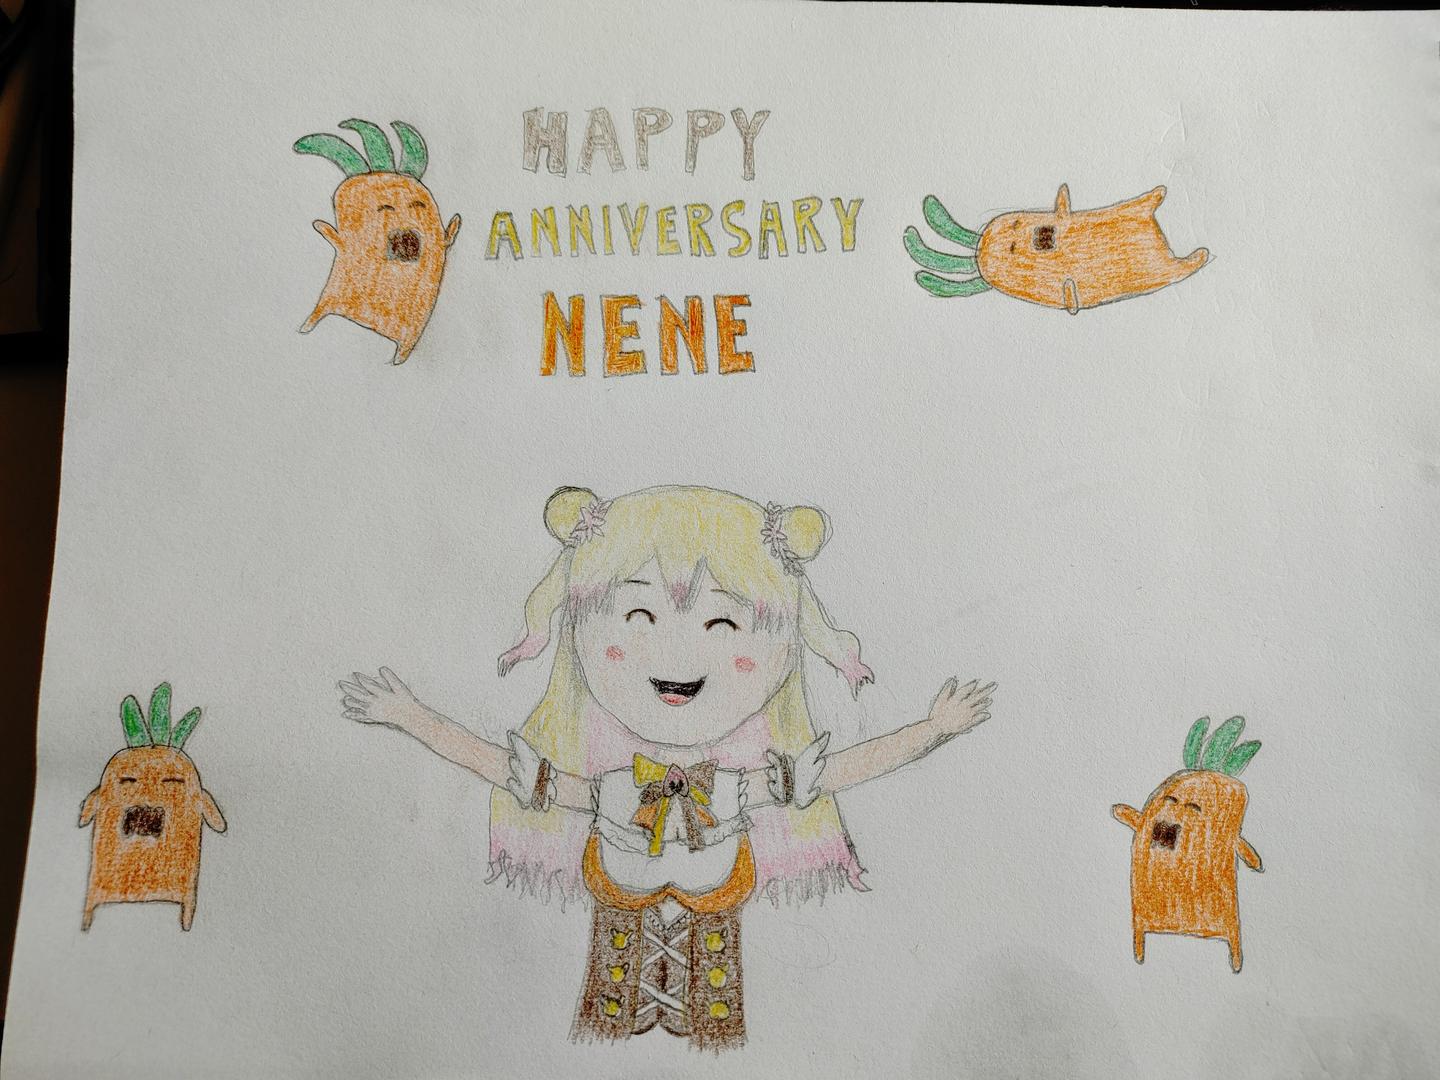 HAPPY
ANNIVERSARY
NENE